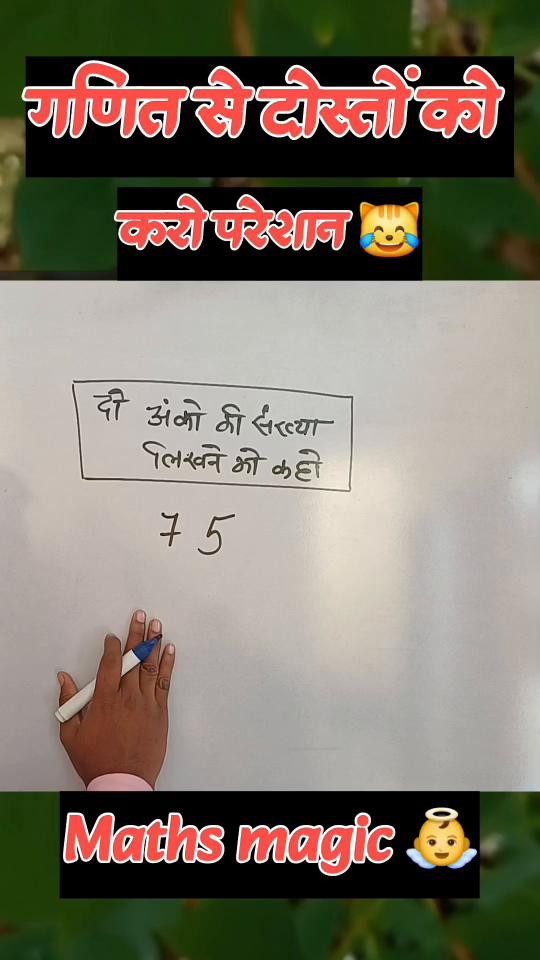 गणित से दोस्तों को
करो परेशान 😹
दो अंको की संख्या
लिखने को कहो
75
Maths magic 👼